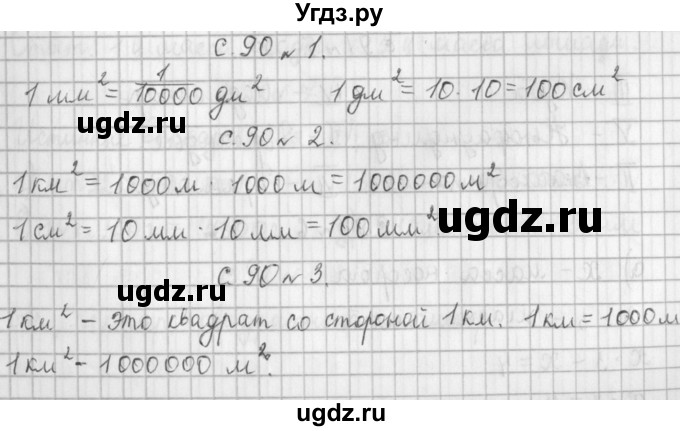 Угдз.ру
с. 90 № 1.
1 мм² = 1/10000 дм² 1 дм² = 10 · 10 = 100 см²
ugdz.ru
с. 90 № 2.
1 км² = 1000 м · 1000 м = 1000000 м²
ugdz.ru
1 см² = 10 мм · 10 мм = 100 мм²
ugdz.ru
с. 90 № 3.
ugdz.ru
1 км² - это квадрат со стороной 1 км. 1 км = 1000 м
1 км² - 1000000 м².
ugdz.ru
ugdz.ru